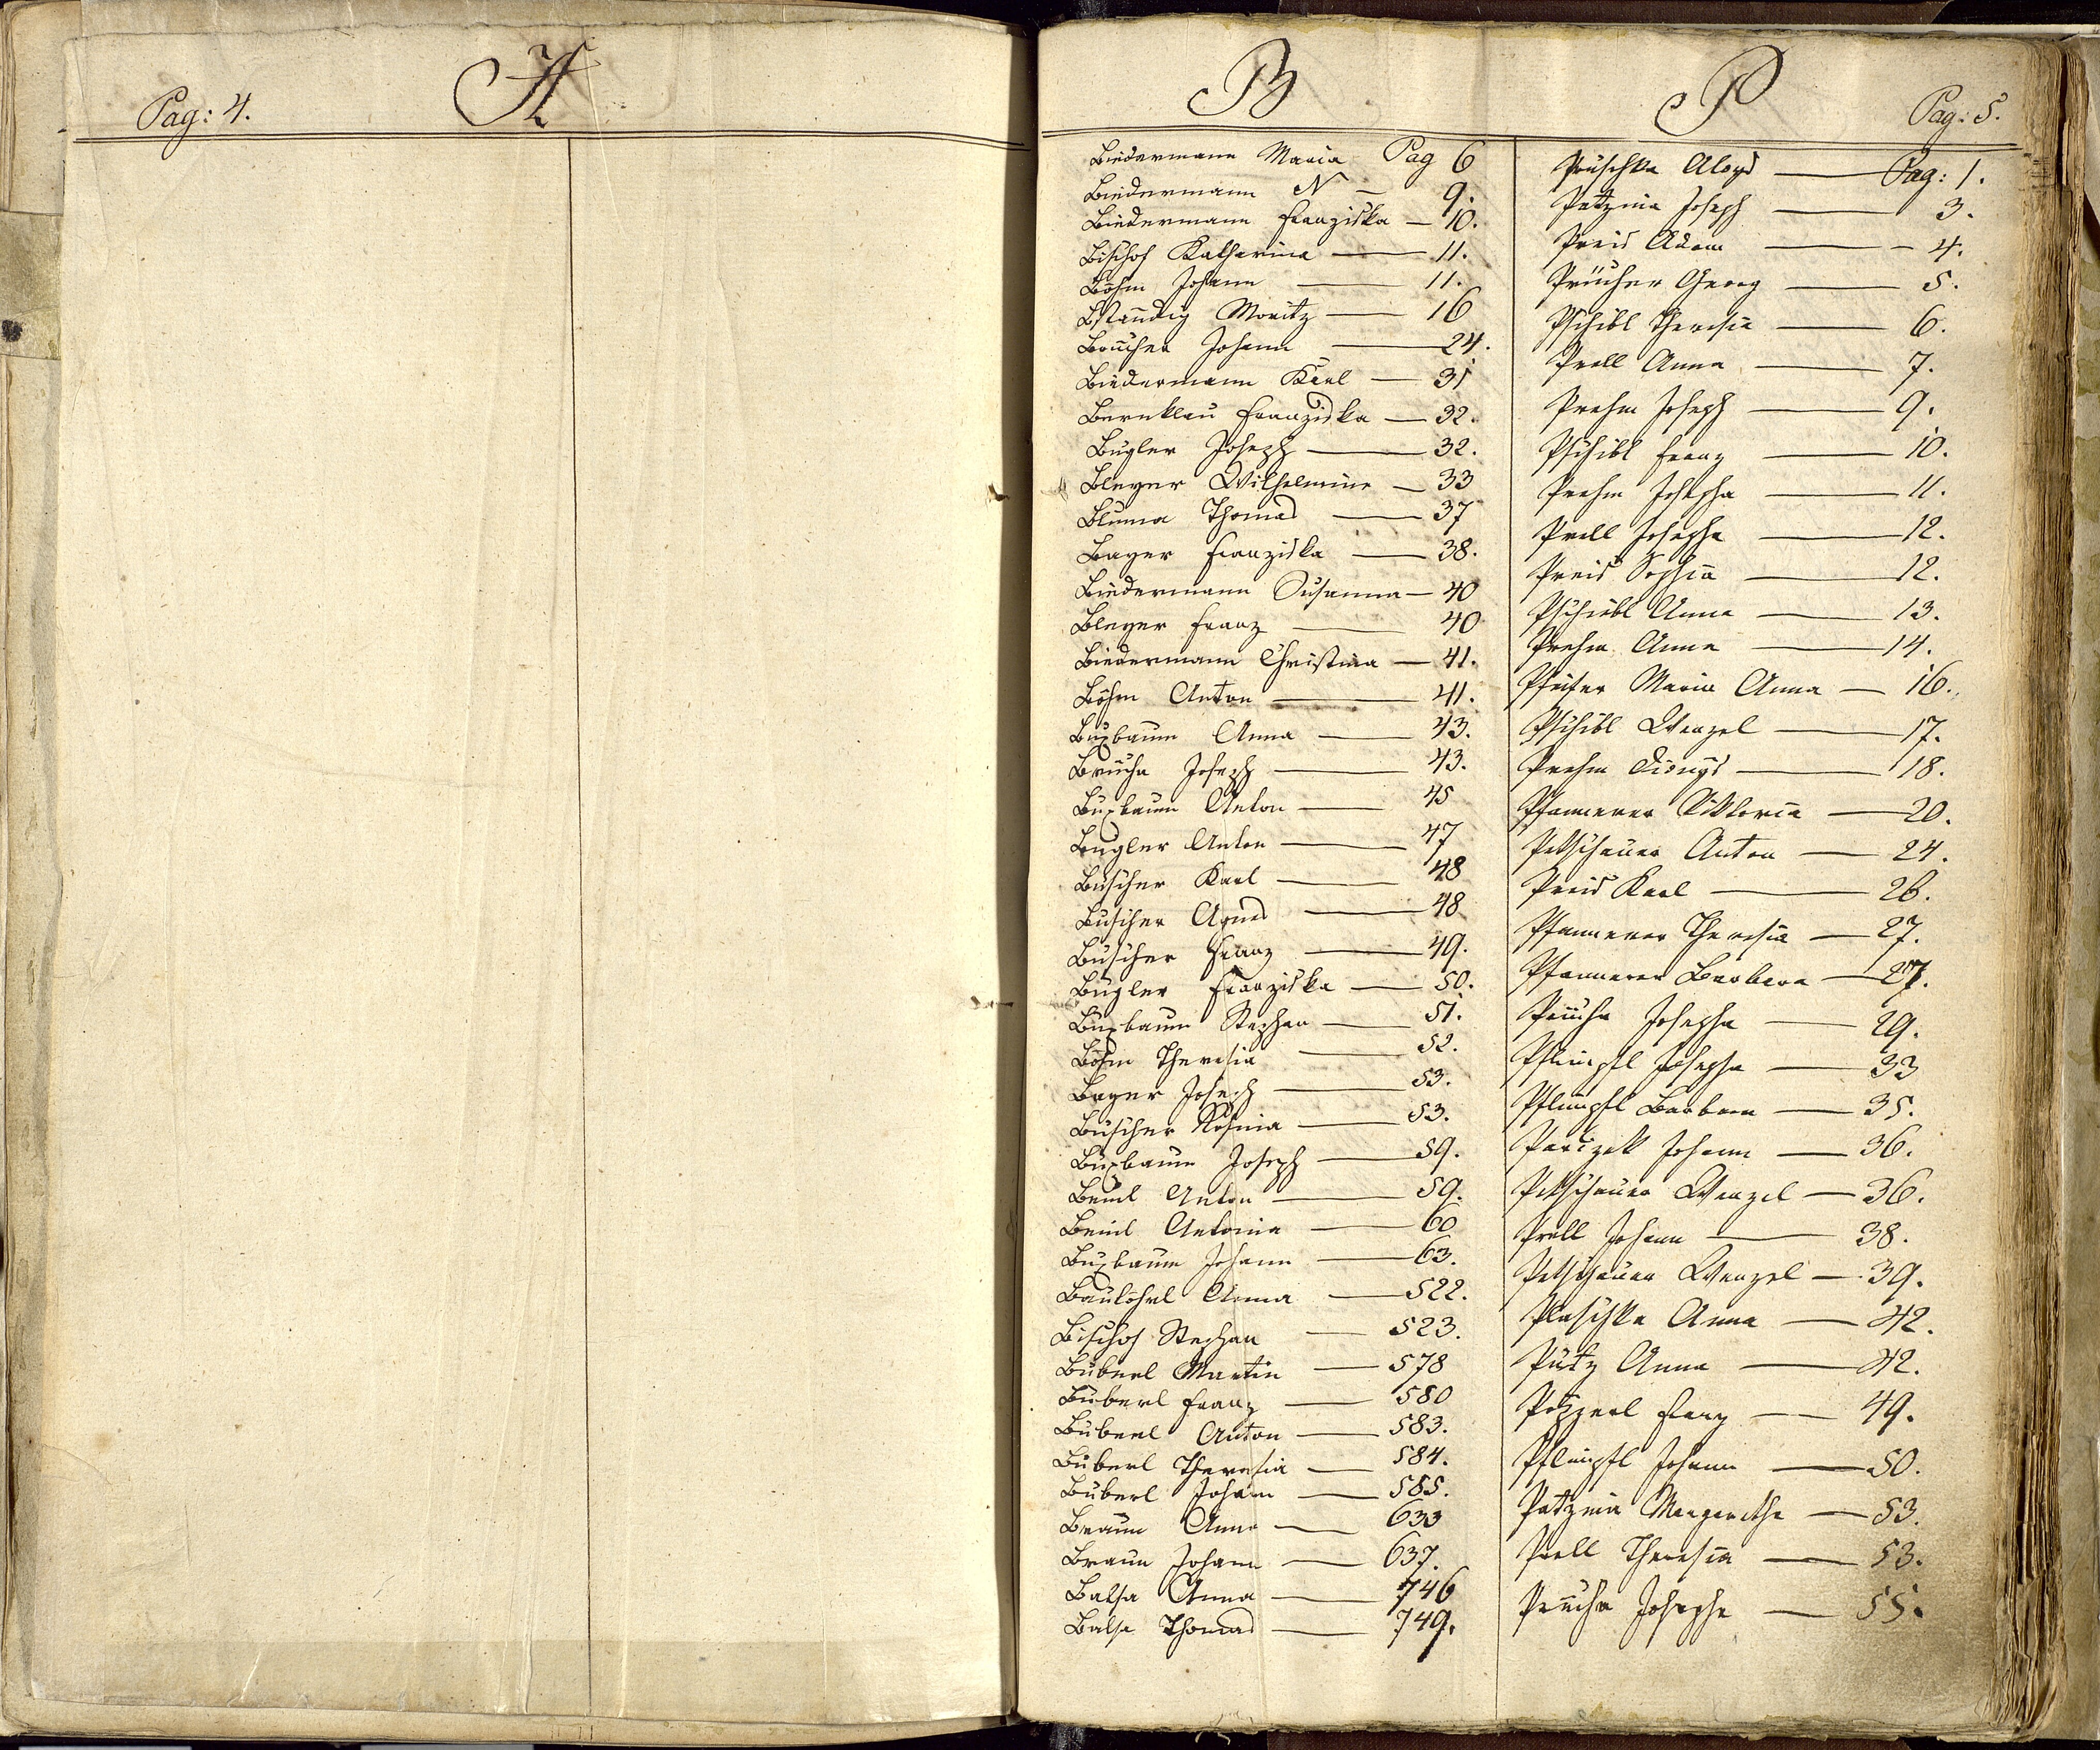 Pag: 4.
A
B
Biedermann Maria Pag 6
Biedermann N — 9.
Biedermann Franziska — 10.
Bischof Katharina — 11.
Böhm Johann — 11.
Bständig Moritz — 16
Brucher Johann — 24.
Biedermann Karl — 31
Bernklau Franziska — 32.
Bugler Joseph — 32.
Bleyer Wilhelmine — 33
Bluma Thomas — 37
Bayer Franziska — 38.
Biedermann Susanna — 40
Bleyer Franz — 40
Biedermann Christina — 41.
Böhm Anton — 41.
Buxbaum Anna — 43.
Brucha Joseph — 43.
Buxbaum Anton — 45
Bugler Anton — 47
Buscher Karl — 48
Buscher Agnes — 48
Buscher Franz — 49.
Bugler Franziska — 50.
Buxbaum Stephan — 51.
Böhm Theresia — 52.
Bayer Joseph — 53.
Buscher Rosina — 53.
Buxbaum Joseph — 59.
Beinl Anton — 59.
Beinl Antonia — 60
Buxbaum Johann — 63.
Baulöhrl Anna — 522.
Bischof Stephan — 523.
Buberl Martin — 578
Buberl Franz — 580
Buberl Anton — 583.
Buberl Theresia — 584.
Buberl Johann — 585.
Braun Anna — 633
Braun Johann — 637.
Balsa Anna — 746
Balsa Thomas — 749.
P
Pag: 5.
Pruschka Aloys — Pag: 1.
Patzina Joseph — 3.
Preis Adam — 4.
Prucher Georg — 5.
Pschibl Theresia — 6.
Prell Anna — 7.
Prehm Joseph — 9.
Pschibl Franz — 10.
Prehm Josepha — 11.
Prell Josepha — 12.
Preis Sophia — 12.
Pschibl Anna — 13.
Prehm Anna — 14.
Pfeifer Maria Anna — 16.
Pschibl Wenzel — 17.
Prehm Dionys — 18.
Pfannerer Viktoria — 20.
Petschauer Anton — 24.
Preis Karl — 26.
Pfannerer Theresia — 27.
Pfannerer Barbara — 27.
Prucha Josepha — 29.
Pflumpfl Josepha — 33
Pflumpfl Barbara — 35.
Parizek Johann — 36.
Petschauer Wenzel — 36.
Prell Johann — 38.
Petschauer Wenzel — 39.
Plaschka Anna — 42.
Putz Anna — 42.
Franz — 49.
Pflumpfl Johann — 50.
Patzina Margaretha — 53.
Prell Theresia — 53.
Prucha Josepha — 55.